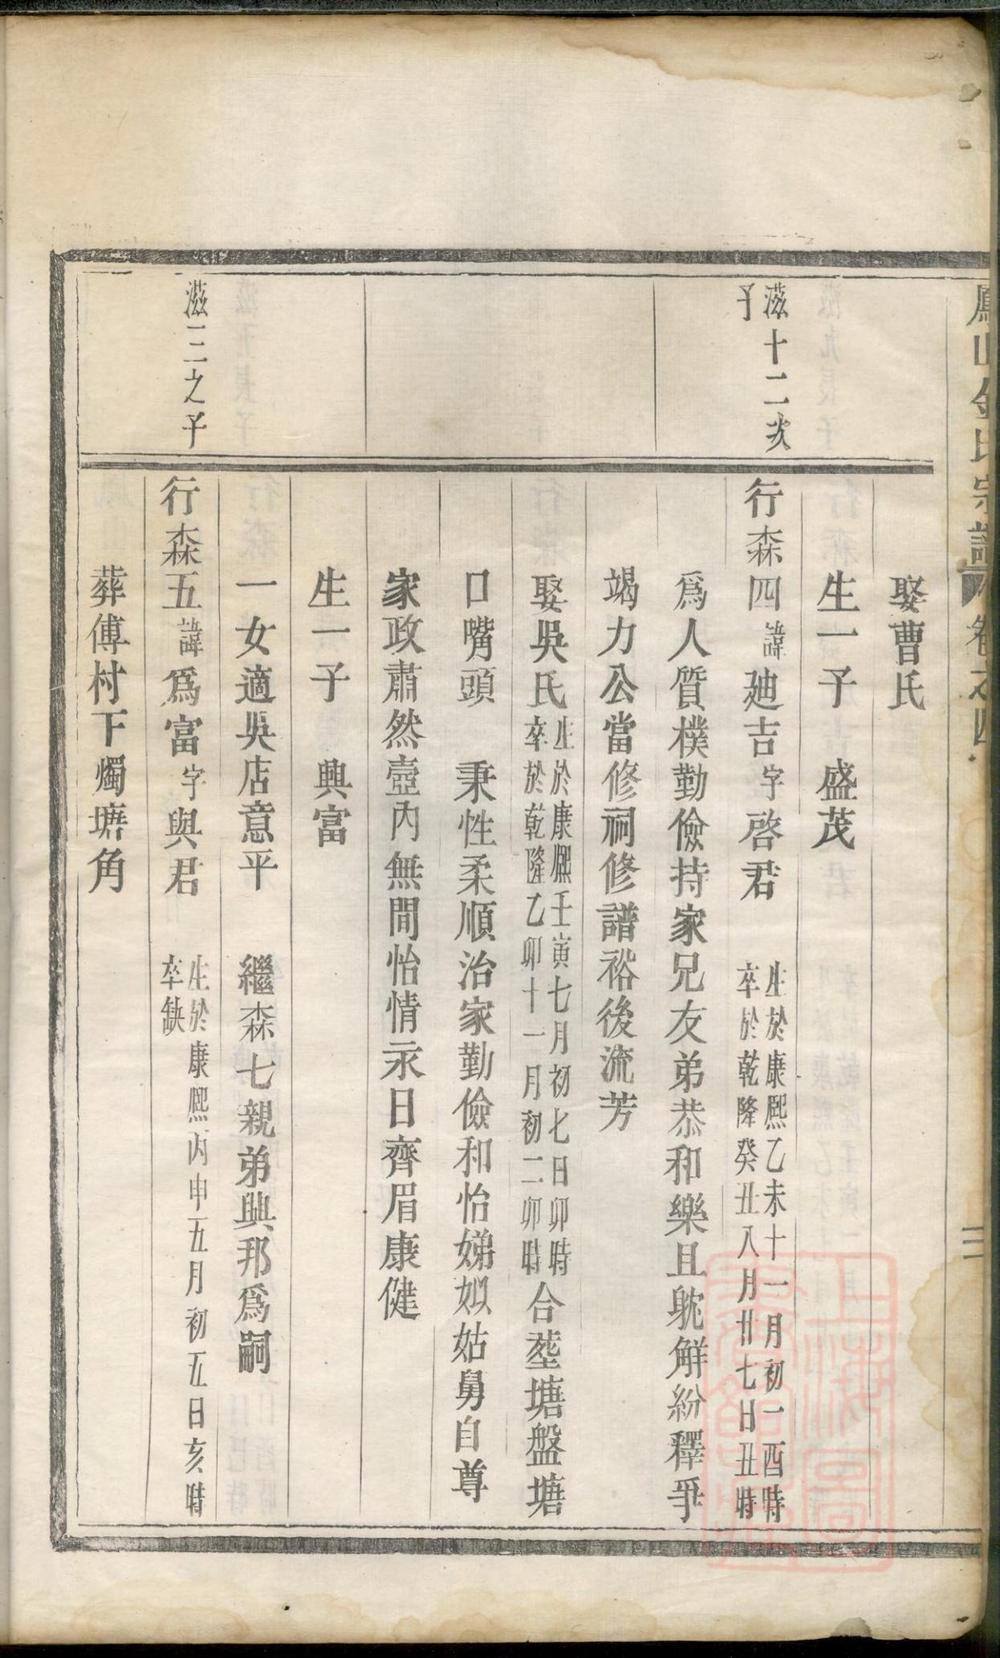 鳳山金氏宗譜 卷之四 三
娶曹氏
生一子 盛茂
滋十二次子
行森四諱廸吉字啓君 生於康熙乙未十一月初一酉時
卒於乾隆癸丑八月廿七日丑時
爲人質樸勤儉持家兄友弟恭和樂且躭解紛釋爭
竭力公當修祠修譜裕後流芳
娶吳氏 生於康熙壬寅七月初七日卯時
卒於乾隆乙卯十一月初二卯時 合塟塘盤塘
口嘴頭 秉性柔順治家勤儉和怡娣姒姑舅自尊
家政肅然壼內無間怡情永日齊眉康健
生一子 興富
一女適吳店意平 繼森七親弟興邦爲嗣
滋三之子
行森五諱爲富字與君 生於康熙丙申五月初五日亥時
卒缺
葬傅村下燭塘角